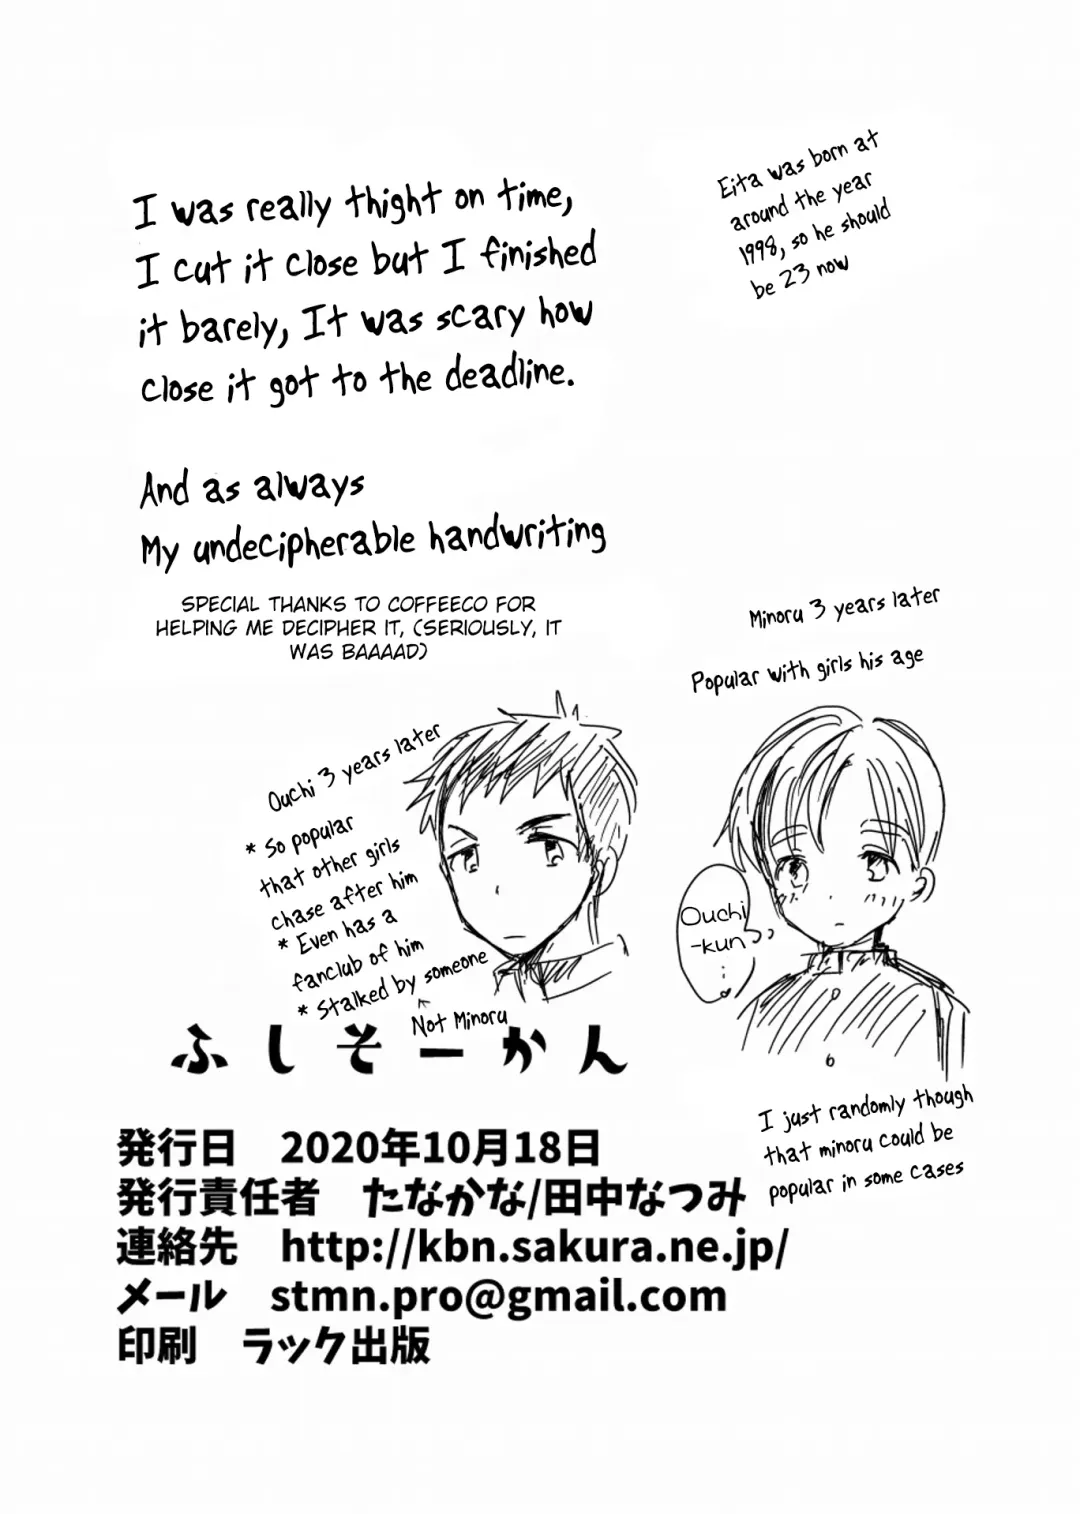 I was really thight on time,
I cut it close but I finished
it barely, It was scary how
close it got to the deadline.
Eita was born at
around the year
1998, so he should
be 23 now
And as always
My undecipherable handwriting
SPECIAL THANKS TO COFFEECO FOR
HELPING ME DECIPHER IT, (SERIOUSLY, IT
WAS BAAAAD)
Minoru 3 years later
Popular with girls his age
Ouchi 3 years later
* So popular
that other girls
chase after him
* Even has a
fanclub of him
* Stalked by someone
Not Minoru
Ouchi
-kun
⋮
ふしそーかん
I just randomly though
that minoru could be
popular in some cases
発行日 2020年10月18日
発行責任者 たなかな/田中なつみ
連絡先 http://kbn.sakura.ne.jp/
メール stmn.pro@gmail.com
印刷 ラック出版